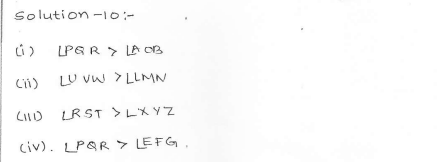 Solution-10:-
(i) ∠PQR > ∠AOB
(ii) ∠UVW > ∠LMN
(iii) ∠RST > ∠XYZ
(iv). ∠PQR > ∠EFG.